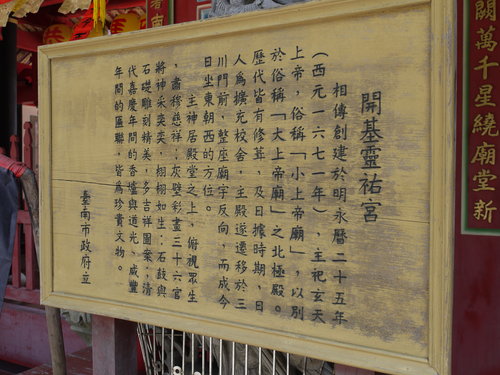 開基靈祐宮
相傳創建於明永曆二十五年
（西元一六七一年），主祀玄天
上帝，俗稱「小上帝廟」，以別
於俗稱「大上帝廟」之北極殿。
歷代皆有修葺，及日據時期，日
人為擴充校舍，主殿遂遷移於三
川門前，整座廟宇反向，而成今
日坐東朝西的方位。
主神居殿堂之上，俯視眾生
，肅穆慈祥；灰壁彩畫三十六官
將神采奕奕，栩栩如生；石鼓與
石礎雕刻精美，多吉祥圖案；清
代嘉慶年間的香爐與道光、咸豐
年間的匾聯，皆為珍貴文物。
臺南市政府立
關萬千星統廟堂新